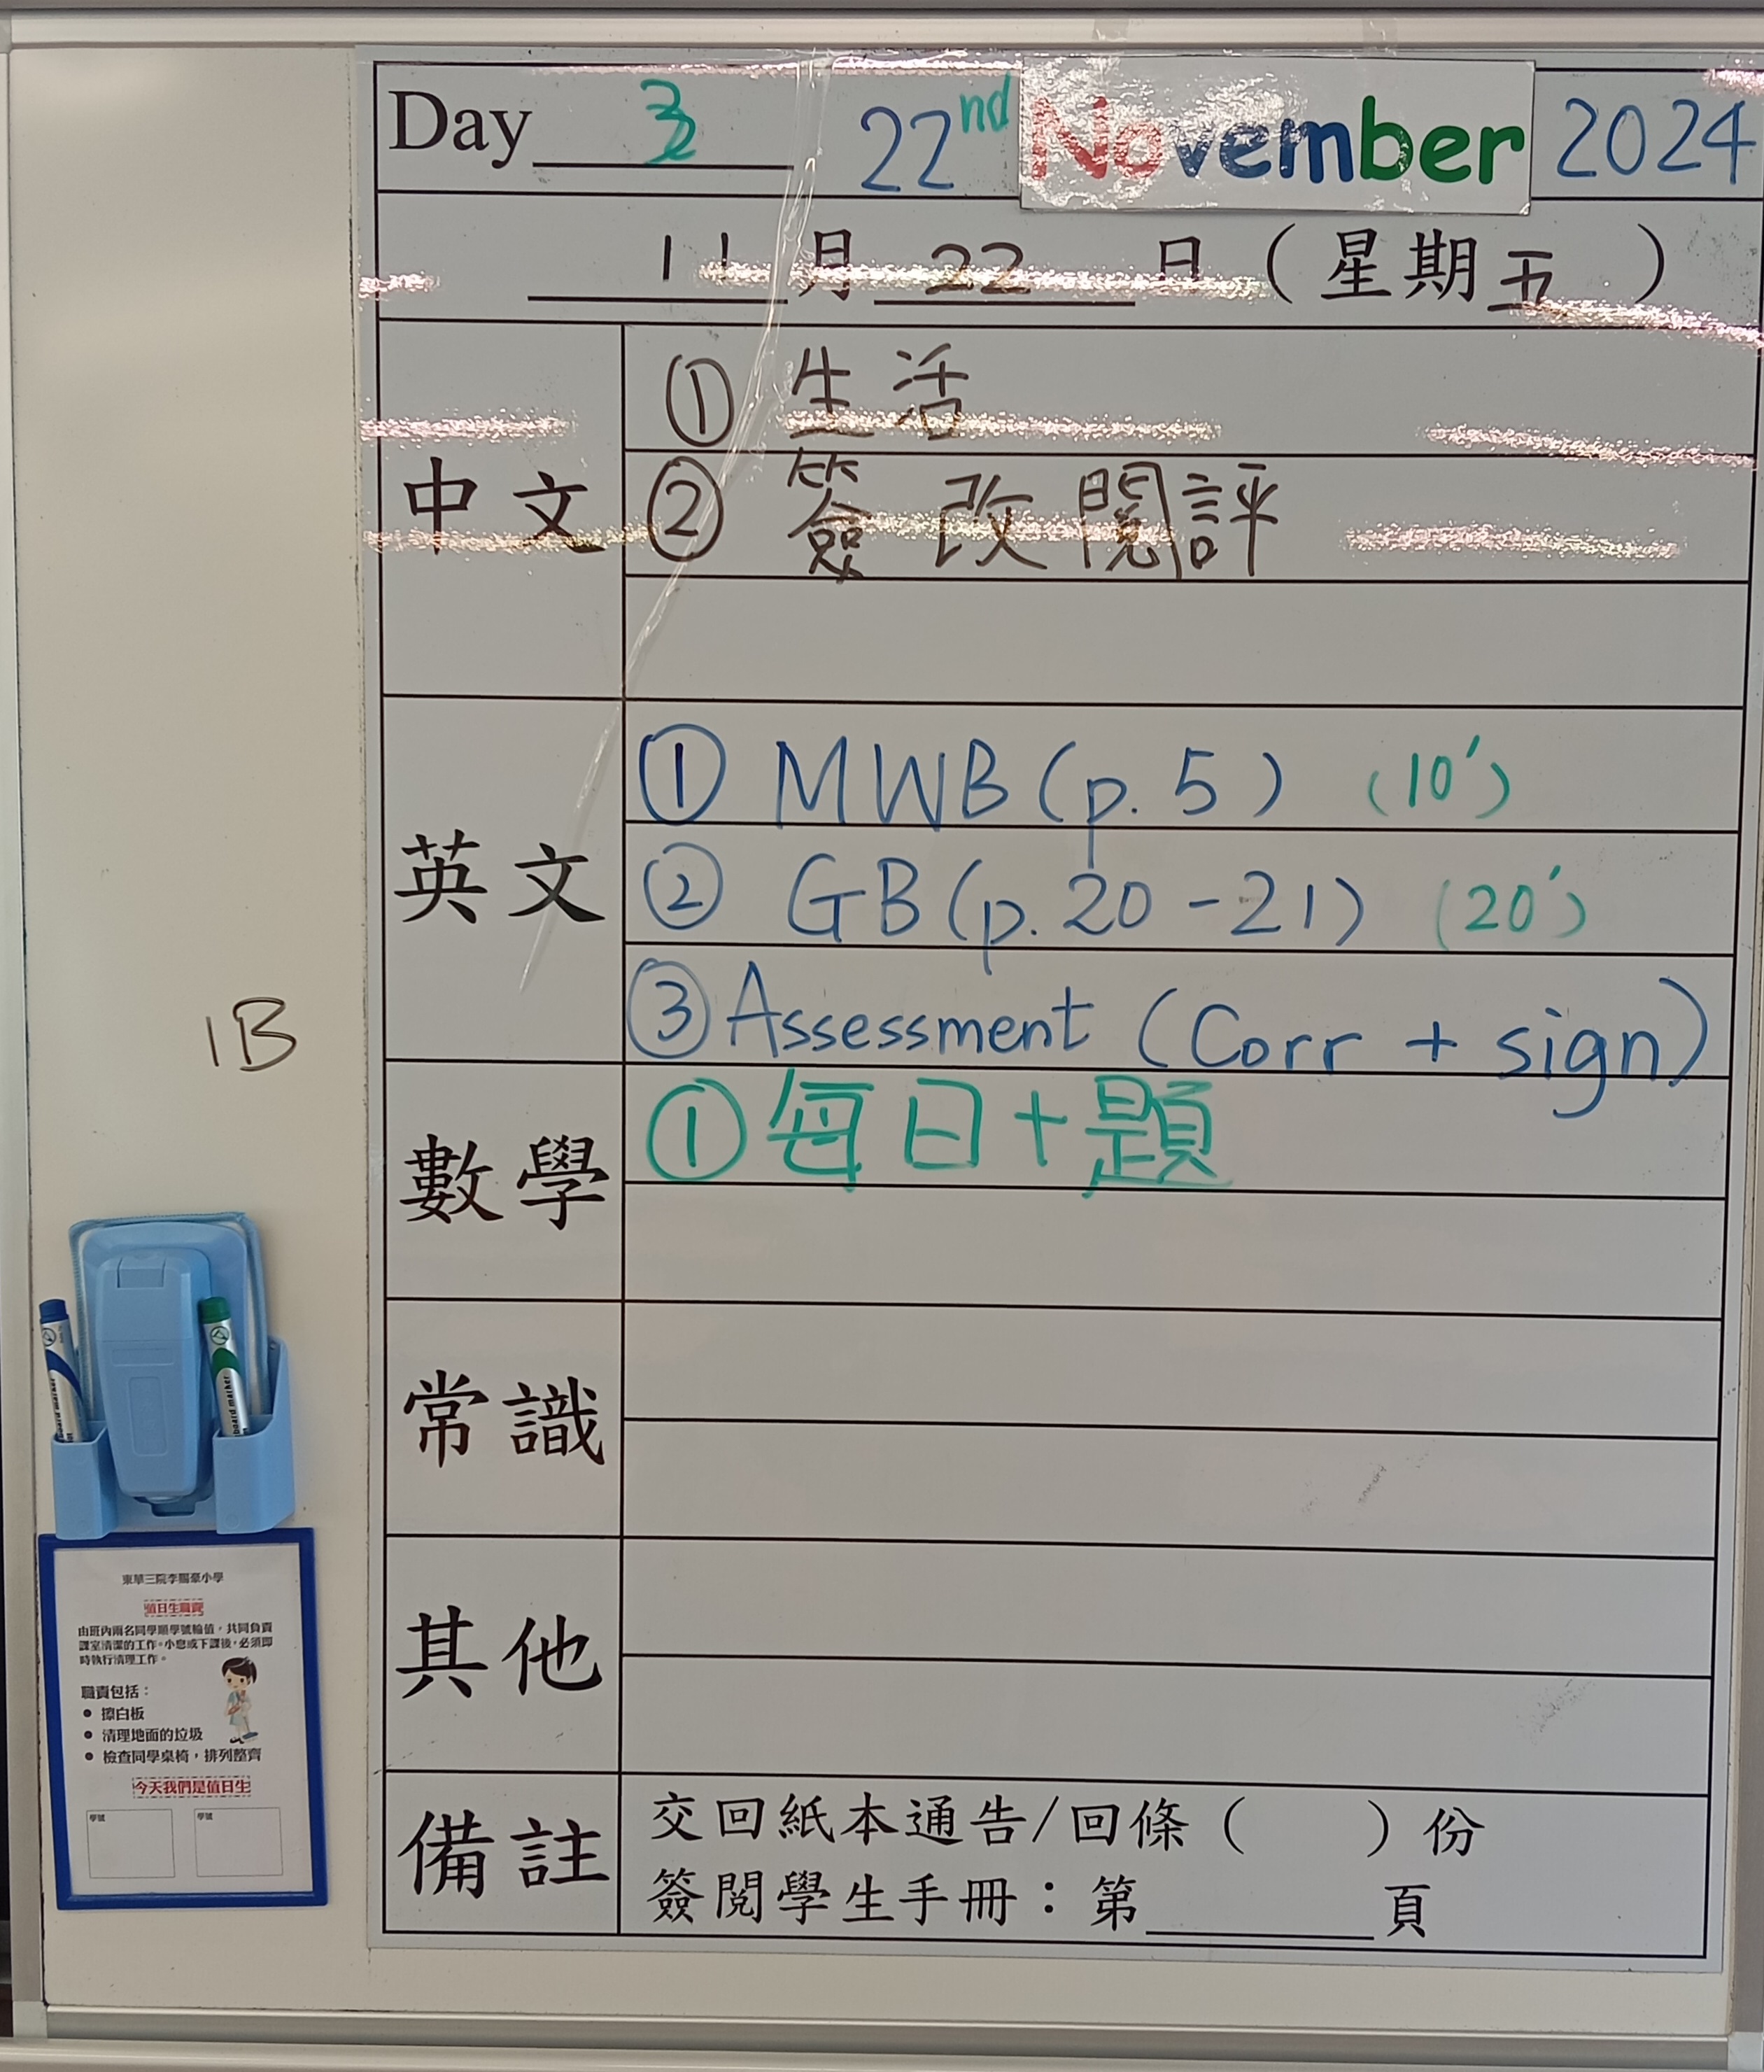 Day 3 22nd November 2024
11月22日（星期五）
中文
① 生活
② 簽改閱評
英文
① MWB (p. 5) (10')
② GB (p. 20 - 21) (20')
③ Assessment (Corr + sign)
1B
數學
① 每日十題
常識
其他
備註
交回紙本通告/回條（　　）份
簽閱學生手冊：第______頁
board marker
board marker
東華三院李賜豪小學
值日生職責
由班內兩名同學順學號輪值，共同負責
課室清潔的工作。小息或下課後，必須即
時執行清理工作。
職責包括：
• 擦白板
• 清理地面的垃圾
• 檢查同學桌椅，排列整齊
今天我們是值日生
學號 學號